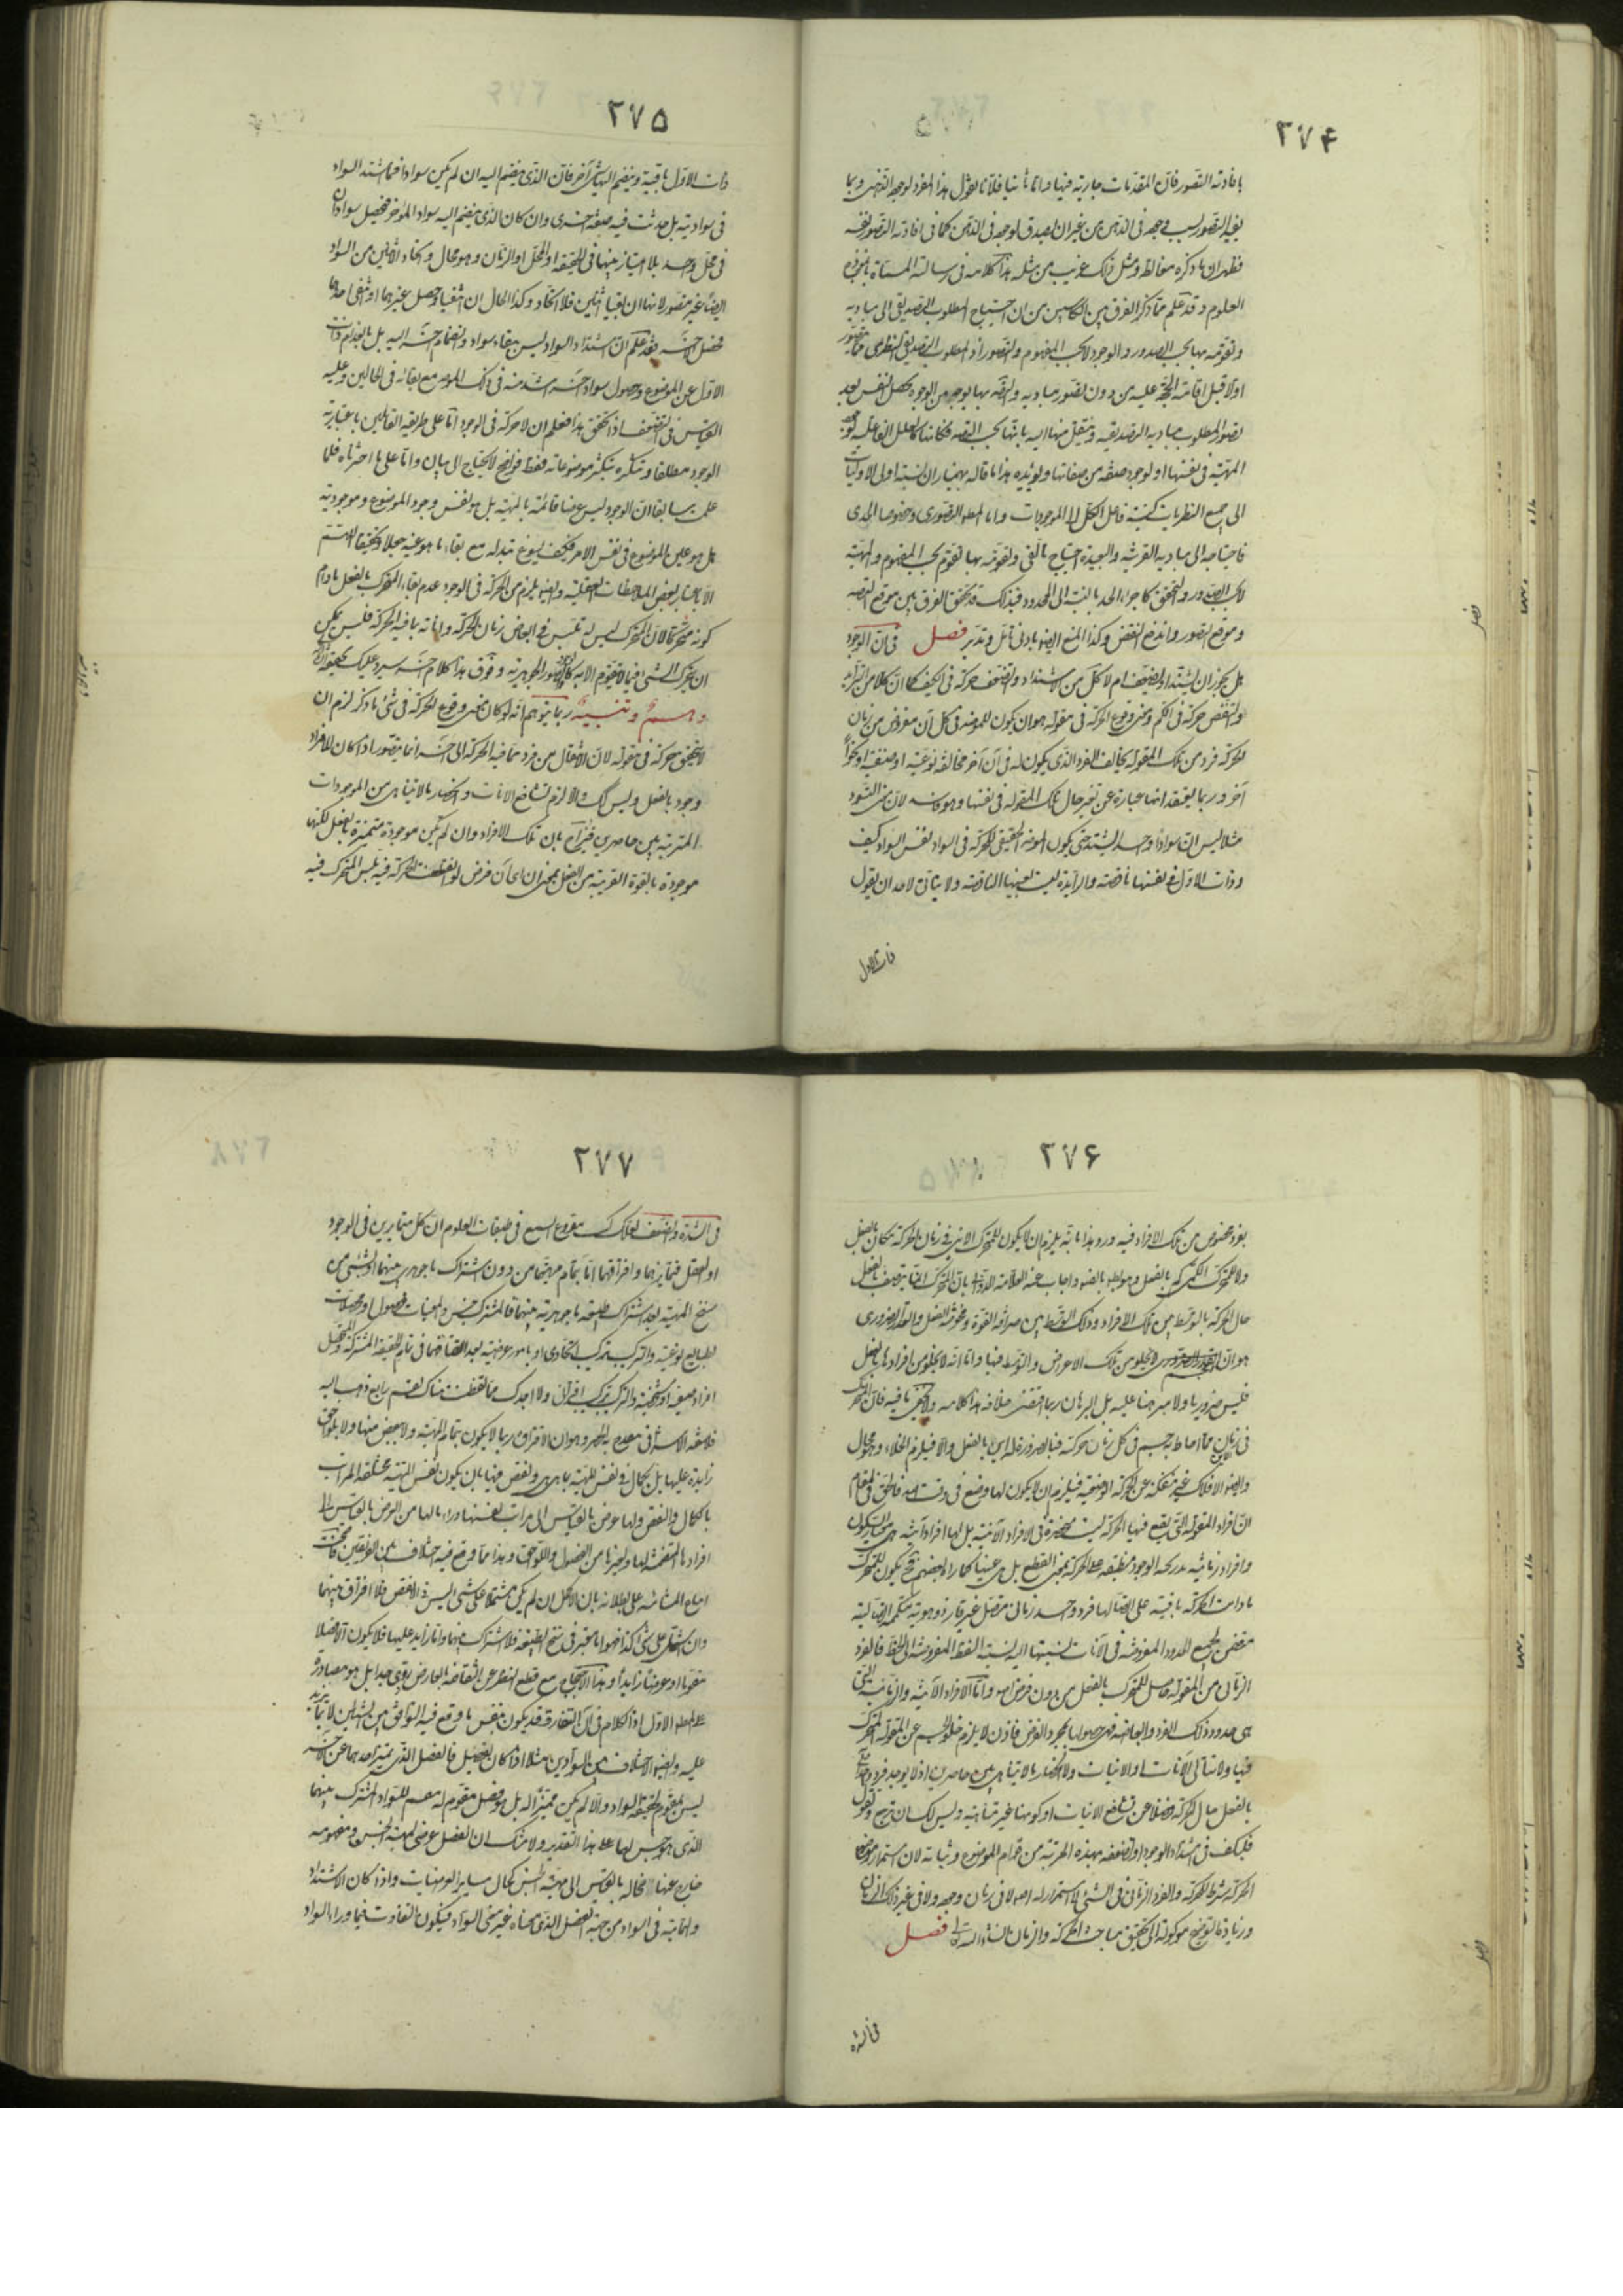 ٢٧۴
بافادته التصور فان المقدمات جارية فيها واما ثانيا فلانا نقول هذا المفرد لوجهه الذهنى وبما
يفيد التصور بسبب وجوده فى الذهن من غير ان يصدق لوجوده فى الذهن كما فى افادته التصور نفسه
فظهر ان ما ذكره مغالطة ومثل ذلك غريب من مثله هذا كلامه فى رسالته المسماة بانموذج
العلوم وقد علم مما ذكر الفرق بين الكاسبين من ان احتياج المطلوب التصديقى الى مباديه
وتقومه بها بحسب الصدور والوجود لا بحسب المفهوم والتصور اذ المطلوب التصديقى النظرى مما يتصور
اولا قبل اقامة الحجة عليه من دون تصور مباديه والتصديق بها بوجه من الوجوه يحصل للنفس بعد
تصور المطلوب مباديه التصديقية وينتقل منها اليه بانتهائها بحسب التصديق فكانها كالعلل الفاعلية لوجود
المهية فى نفسها او لوجود صفة من صفاتها ويؤيده هذا ما قاله بهمنيار ان نسبة اولى الاوليات
الى جميع النظريات كنسبة فاعل الكل الى الموجودات واما المطلوب التصورى وخصوصا الحدى
فاحتياجه الى مباديه القريبة والبعيدة احتياج تألفى وتقومه بها تقوم بحسب المفهوم والمهية
لا بحسب الصدور والتحقق كاجزاء الحد بالنسبة الى المحدود فبذلك قد تحقق الفرق بين موقع التصديق
وموقع التصور واندفع النقض وكذا المنع ايضا بادنى تأمل وتدبر فصل فى ان الوجود
هل يجوز ان يشتد او يتضعف ام لا كل من الاشتداد والتضعف حركة فى الكيف كما ان كلا من التزايد
والتنقص حركة فى الكم ومعنى وقوع الحركة فى مقولة هو ان يكون للموضوع فى كل آن مفروض من زمان
الحركة فرد من تلك المقولة يخالف الفرد الذى يكون له فى آن آخر مخالفة نوعية او صنفية او نحوا
آخر وربما يعتقد انها عبارة عن تغير حال تلك المقولة فى نفسها وهو فاسد لان معنى التسود
مثلا ليس ان سوادا واحدا يشتد حتى يكون الموضوع الحقيقى للحركة فى السواد نفس السواد كيف
وذات الاول فى نفسها ناقصة والزايدة ليست بعينها الناقصة ولا يتأتى لاحد ان يقول
ذات الاول
٢٧۵
ذات الاول باقية وينضم اليها شىء آخر فان الذى ينضم اليه ان لم يكن سوادا فما اشتد السواد
فى سواديته بل حدثت فيه صفة اخرى وان كان الذى ينضم اليه سوادا آخر فيحصل سوادان
فى محل واحد بلا امتياز بينهما فى الحقيقة او المحل او الزمان وهو محال واتحاد الاثنين من السواد
ايضا غير متصور لانهما ان بقيا اثنين فلا اتحاد وكذا الحال ان انتفيا وحصل غيرهما او انتفى احدهما
وحصل الآخر فقد علم ان اشتداد السواد ليس ببقاء سواد وانضمام آخر اليه بل بانعدام ذات
الاول عن الموضوع وحصول سواد آخر اشد منه فى ذلك الموضوع مع بقائه فى الحالين وعليه
القياس فى التضعف اذا تحقق هذا فنعلم ان لا حركة فى الوجود اما على طريقة القائلين باعتبارية
الوجود مطلقا وتكثره بتكثر موضوعاته فقط فواضح لا يحتاج الى بيان واما على ما اخترناه فلما
علمت سابقا ان الوجود ليس عرضا قائما بالمهية بل هو نفس وجود الموضوع وموجوديته
بل هو عين الموضوع فى نفس الامر فكيف يسوغ تبدله مع بقاء ما هو عينه جعلا وتحقيقا اللهم
الا باعتبار بعض الملاحظات العقلية وايضا يلزم من الحركة فى الوجود عدم بقاء المتحرك بالفعل ما دام
كونه متحركا لان المتحرك ليس له تلبس فى ابعاض زمان الحركة وآناته بما فيه الحركة فليس يمكن
ان يتحرك الشىء فيما لا يتقوم الا به كالوجود والصور الجوهرية وفوق هذا كلام آخر سيرد عليك تحقيقه
وهم وتنبيه ربما يتوهم انه لو كان معنى وقوع الحركة فى شىء ما ذكر لزم ان
لا يتحقق حركة فى مقولة لان الانتقال من فرد مما فيه الحركة الى آخر انما يتصور اذا كان للافراد
وجود بالفعل وليس كذلك والا لزم تشافع الآنات وانحصار ما لا يتناهى من الموجودات
المترتبة بين حاصرين فيزاح بان تلك الافراد وان لم يكن موجودة متميزة بالفعل لكنها
موجودة بالقوة القريبة من الفعل بمعنى ان اى آن فرض لو انقطعت الحركة فيه تلبس المتحرك فيه
٢٧۶
بفرد مخصوص من تلك الافراد فيه ورد هذا بانه يلزم ان لا يكون للمتحرك الاينى فى زمان الحركة مكان بالفعل
ولا للمتحرك الكمى كم بالفعل وهو باطل بالضرورة واجاب عنه العلامة الدوانى بان المتحرك انما يتصف بالفعل
حال الحركة بالتوسط بين تلك الافراد وذلك التوسط بين صرافة القوة ومحوضة الفعل والقدر الضرورى
هو ان الجسم لا يخلو من تلك الاعراض والتوسط فيها واما انه لا يخلو من افرادها بالفعل
فليس ضروريا ولا مبرهنا عليه بل البرهان ربما اقتضى خلافه هذا كلامه ولا يخفى ما فيه فان المتحرك
فى زمان مما احاط به جسم فى كل زمان حركته فبالضرورة له اين بالفعل والا فيلزم الخلاء وهو محال
وايضا الافلاك غير منفكة عن الحركة الوضعية فيلزم ان لا يكون لها وضع فى وقت فالحق فى المقام
ان افراد المقولة التى يقع فيها الحركة ليست منحصرة فى الافراد الآنية بل لها افراد آنية هى معيار السكون
وافراد زمانية تدريجية الوجود منطبقة على الحركة بمعنى القطع بل هى عينها كما رآه بعضهم فحينئذ يكون للمتحرك
ما دامت الحركة باقية على اتصالها فرد واحد زمانى متصل غير قار ذو هوية متكممة اتصالية
متضمن لجميع الحدود المفروضة فى الآنات نسبتها اليه نسبة النقط المفروضة الى الخط فالفرد
الزمانى من المقولة حاصل للمتحرك بالفعل من دون فرض اصلا واما الافراد الآنية والزمانية التى
هى حدود ذلك الفرد وابعاضه فهى حصولها بمجرد الفرض فاذن لا يلزم خلو الجسم عن المقولة المتحرك
فيها ولا تتالى الآنات او الآنيات ولا انحصار ما لا يتناهى بين حاصرين اذ لا يوجد فرد واحد
بالفعل حال الحركة فضلا عن تشافع الآنيات او كونها غير متناهية وليس لك ان ترجع وتقول
فليكف فى اشتداد الوجود او تضعفه بهذه المرتبة من قوام الموضوع وثباته لان استمرار موضوع
الحركة شرط للحركة والفرد الزمانى فى الشىء لا استمرار له اصلا لا فى زمان وجوده ولا فى غير ذلك الزمان
وزيادة التوضيح موكولة الى تحقيق مباحث الحركة والزمان انشاء الله تعالى فصل
فى الشدة
٢٧٧
فى الشدة والضعف لعلك كنت مقروع السمع فى طبقات العلوم ان كل متمايزين فى الوجود
او العقل فتمايزهما وافتراقهما اما بتمام مهيتهما من دون اشتراك ما جوهرى بينهما او بشىء من
سنخ المهية بعد اشتراك طبيعة ما جوهرية بينهما فالمشترك جنس والمعينات فصول ومحصلات
لطبايع نوعية والتركيب تركيب اتحادى او بامور عرضية بعد اتفاقهما فى تمام الحقيقة المشتركة والمتحصل
افراد صنفية او شخصية والتركيب تركيب اقترانى ولا اجدك ممن تفطنت هناك بقسم رابع ذهب اليه
فلاسفة الاشراق وهو ان الافتراق ربما لا يكون بتمام المهية ولا ببعض منها ولا بلواحق
زايدة عليها بل بكمال فى نفس المهية بما هى هى ونقص فيها بان يكون نفس المهية مختلفة المراتب
بالكمال والنقص ولها عرض بالقياس الى مراتب نفسها وراء ما لها من العرض بالقياس الى
افرادها المتضمنة لها ولغيرها من الفصول واللواحق وهذا مما وقع فيه اختلاف بين الفريقين فاحتجت
اتباع المشائية على بطلانه بان الاكمل ان لم يكن مشتملا على شىء ليس فى الانقص فلا افتراق بينهما
وان اشتمل على شىء كذا فهو اما معتبر فى سنخ الطبيعة فلا اشتراك بينهما واما زايد عليها فلا يكون الا فصلا
مقوما او عرضيا زايدا وهذا الاحتجاج مع قطع النظر عن انتقاضه بالعارض ردى جدا بل هو مصادرة
على المطلوب الاول اذ الكلام فى ان التفارق قد يكون بنفس ما وقع فيه التوافق بين الشيئين لا بما يزيد
عليه وايضا الاختلاف بين السوادين مثلا اذا كان بفصل فالفصل الذى يميز احدهما عن الآخر
ليس بمقوم لحقيقة السواد والا لم يكن مميزا له بل هو فصل مقوم له مقسم للسواد المشترك بينهما
الذى هو جنس لهما على هذا التقدير ولا شك ان الفصل عرضى لمهية الجنس ومفهومه
خارج عنها فحاله بالقياس الى مهية الجنس كحال ساير العرضيات واذا كان الاشتداد
والتمامية فى السواد من جهة الفصل الذى معناه غير معنى السواد فيكون التفاوت فيما وراء السواد